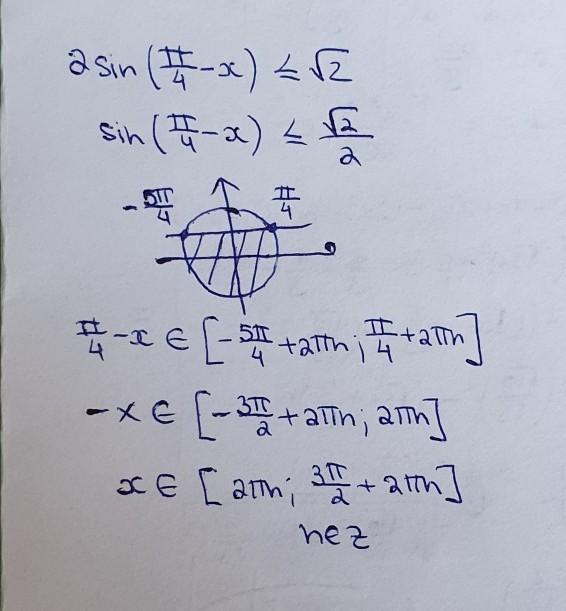 2sin(π/4 - x) ≤ √2
sin(π/4 - x) ≤ √2/2
-5π/4 π/4
π/4 - x ∈ [-5π/4 + 2πn; π/4 + 2πn]
-x ∈ [-3π/2 + 2πn; 2πn]
x ∈ [2πn; 3π/2 + 2πn]
n∈z